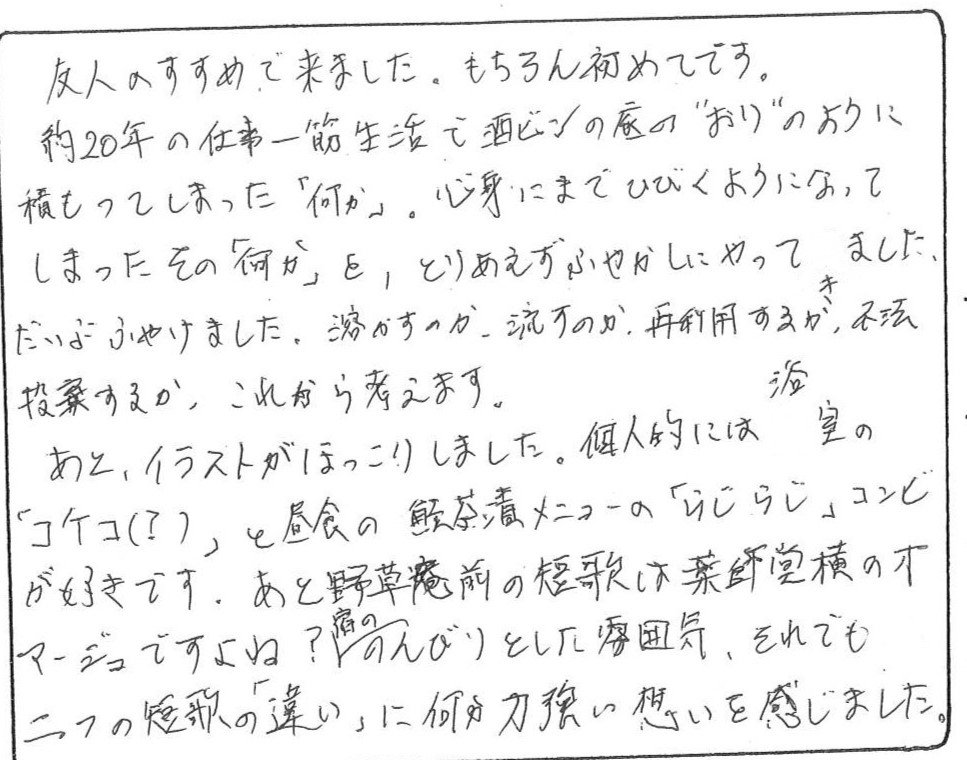 友人のすすめで来ました。もちろん初めてです。
約20年の仕事一筋生活で酒ビンの底の"おり"のように
積もってしまった「何か」。心身にまでひびくようになって
しまったその「何か」を、とりあえずふやかしにやって きました、
だいぶふやけました。溶かすのか、流すのか、再利用するか、不法
投棄するか、これから考えます。
あと、イラストがほっこりしました。個人的には 浴室の
「コケコ(?)」と昼食の 茶漬メニューの「らじらじ」コンビ
が好きです。あと野草庵前の短歌は薬師堂横のオ
マージュですよね?宿ののんびりとした雰囲気、それでも
二つの短歌の「違い」に何か力強い想いを感じました。